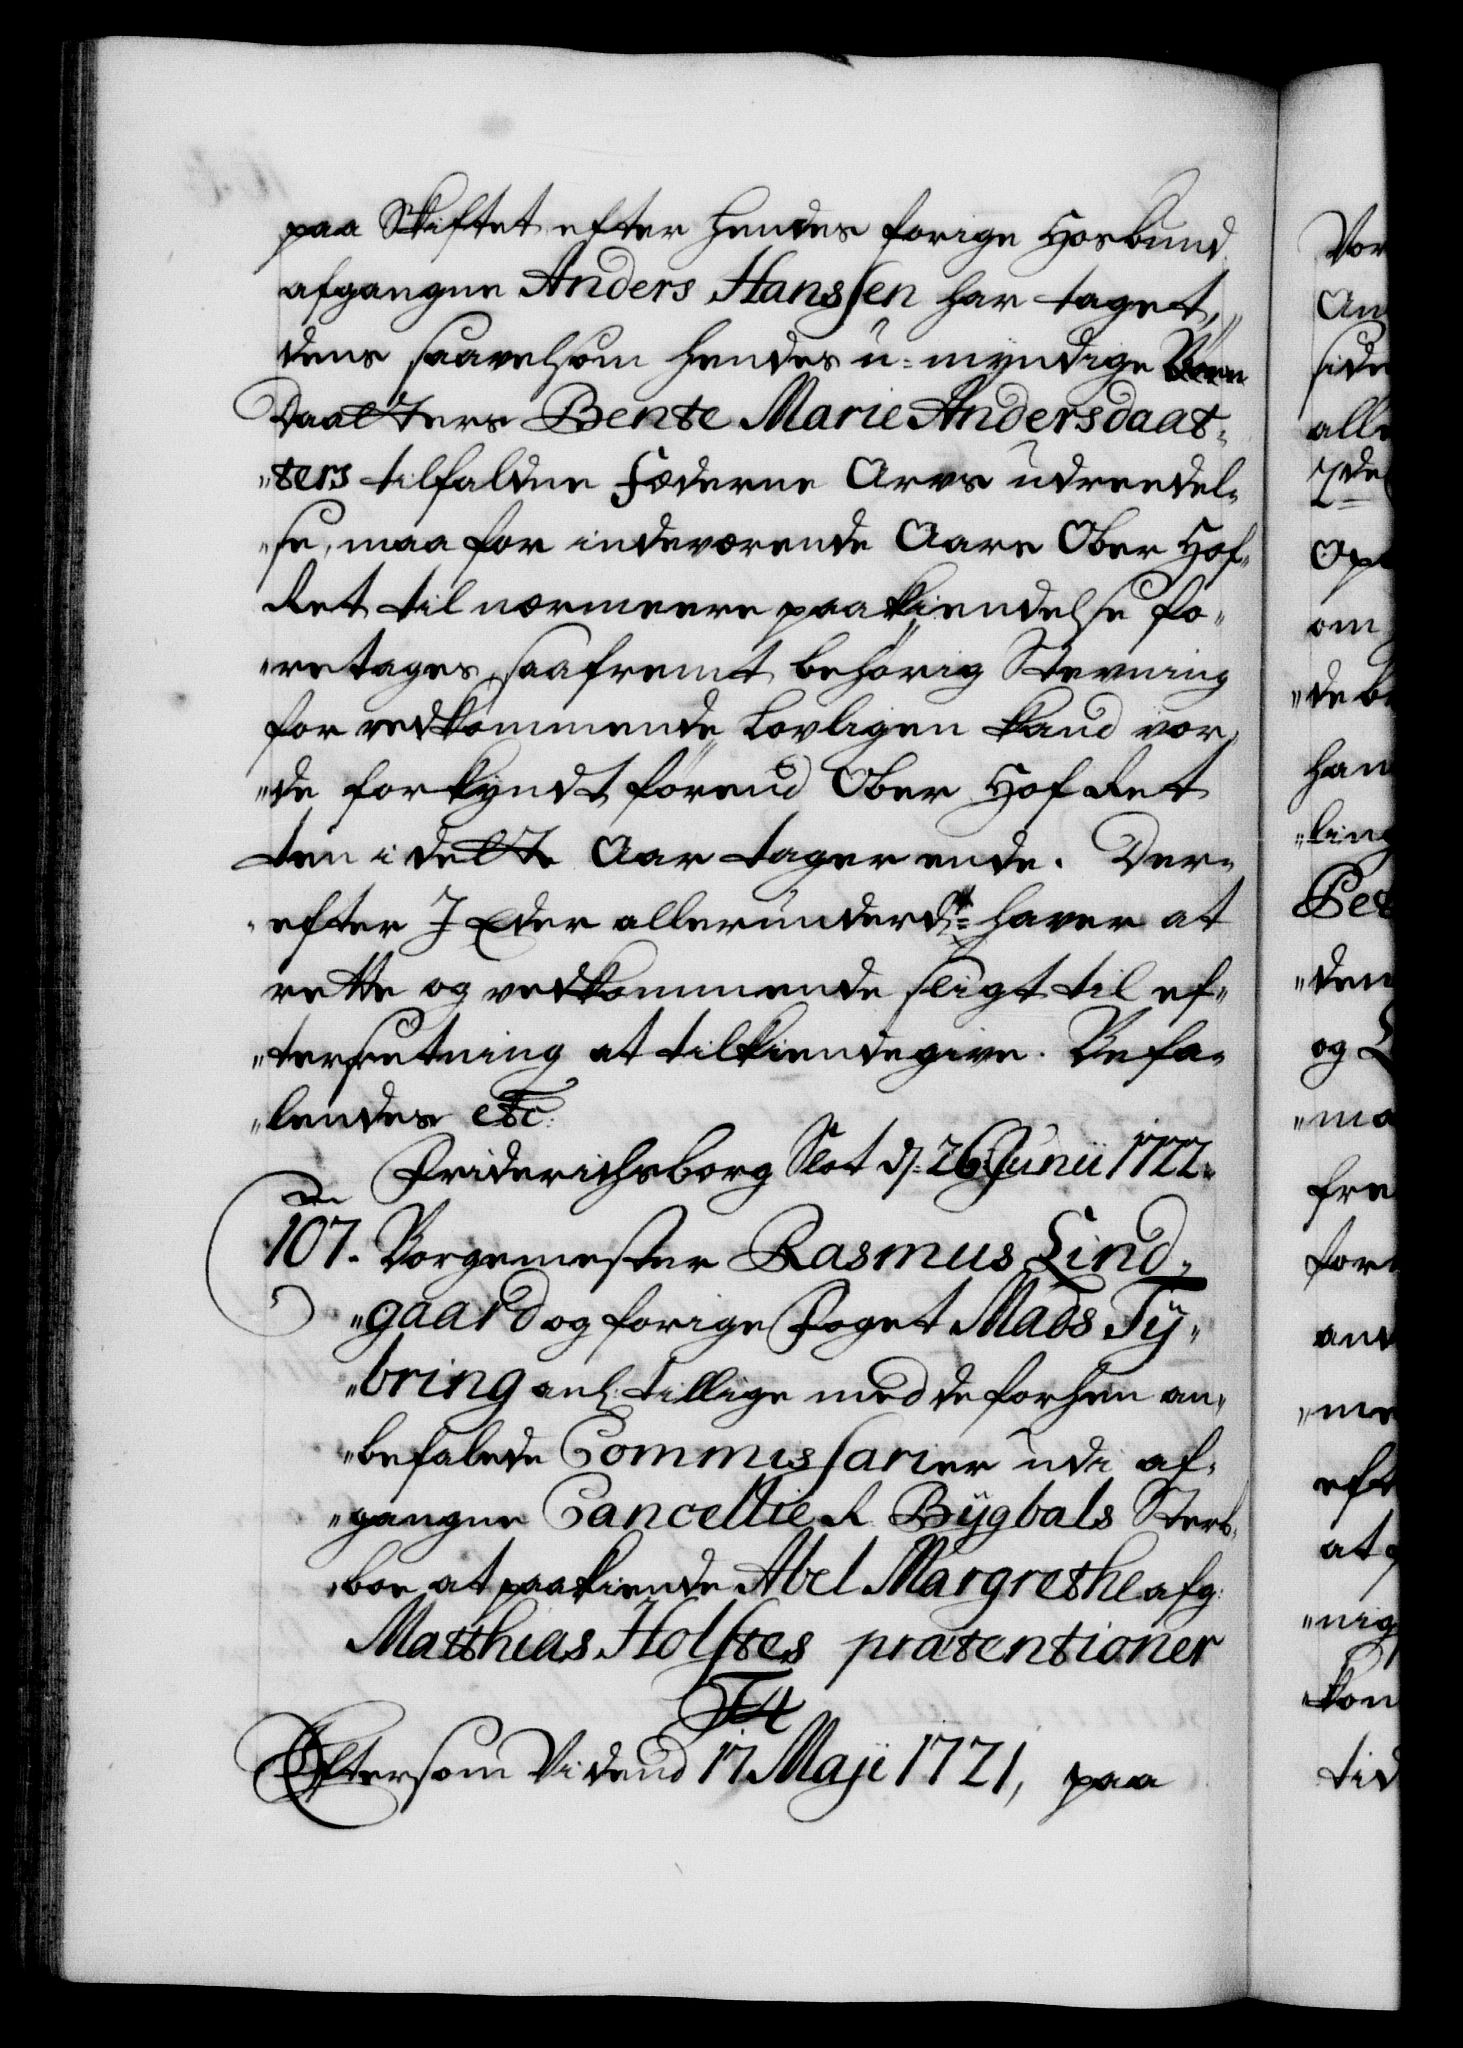 paa Skiftet efter hendes forige Hosbund
afgangne Anders Hanssen har taget,
dens saavelsom hendes u-myndige
Daatters Bente Marie Andersdaat-
"ters tilfaldne Fæderne Arvs udreedel-
"se, maa for indeværende Aars Ober Hof-
Ret til nærmeere paakiendelse fo-
"retages, saafremt behørig Stevning
for vedkommende Lovligen kand vor-
"de forkyndt førend Ober Hof Ret
ten i dette Aar tager ende. Der-
"efter I Eder allerunderd:st haver at
rette og vedkommende sligt til ef-
"terretning at tilkiendegive. Befa-
"lendes etc:
Friderichsborg Slot d: 26 Junii 1722.
107. Borgemester Rasmus Lind-
"gaard og forige Foget Mads Tÿ-
"bring anl: tillige med de forhen an-
"befalede Commissarier udi af-
"gangne Cancellie R Bÿgbals Sterb-
"boe at paakiende Abel Margrethe afg:
Matthias Holstes prætentioner
F4
Eftersom Vi dend 17 Maji 1721, paa
Vor
An
side
alle
7de
Op
om
"de b
han
"ling
Pet
"den
og L
"ma
fre
for
and
"me
eft
at
"nig
"kon
tid